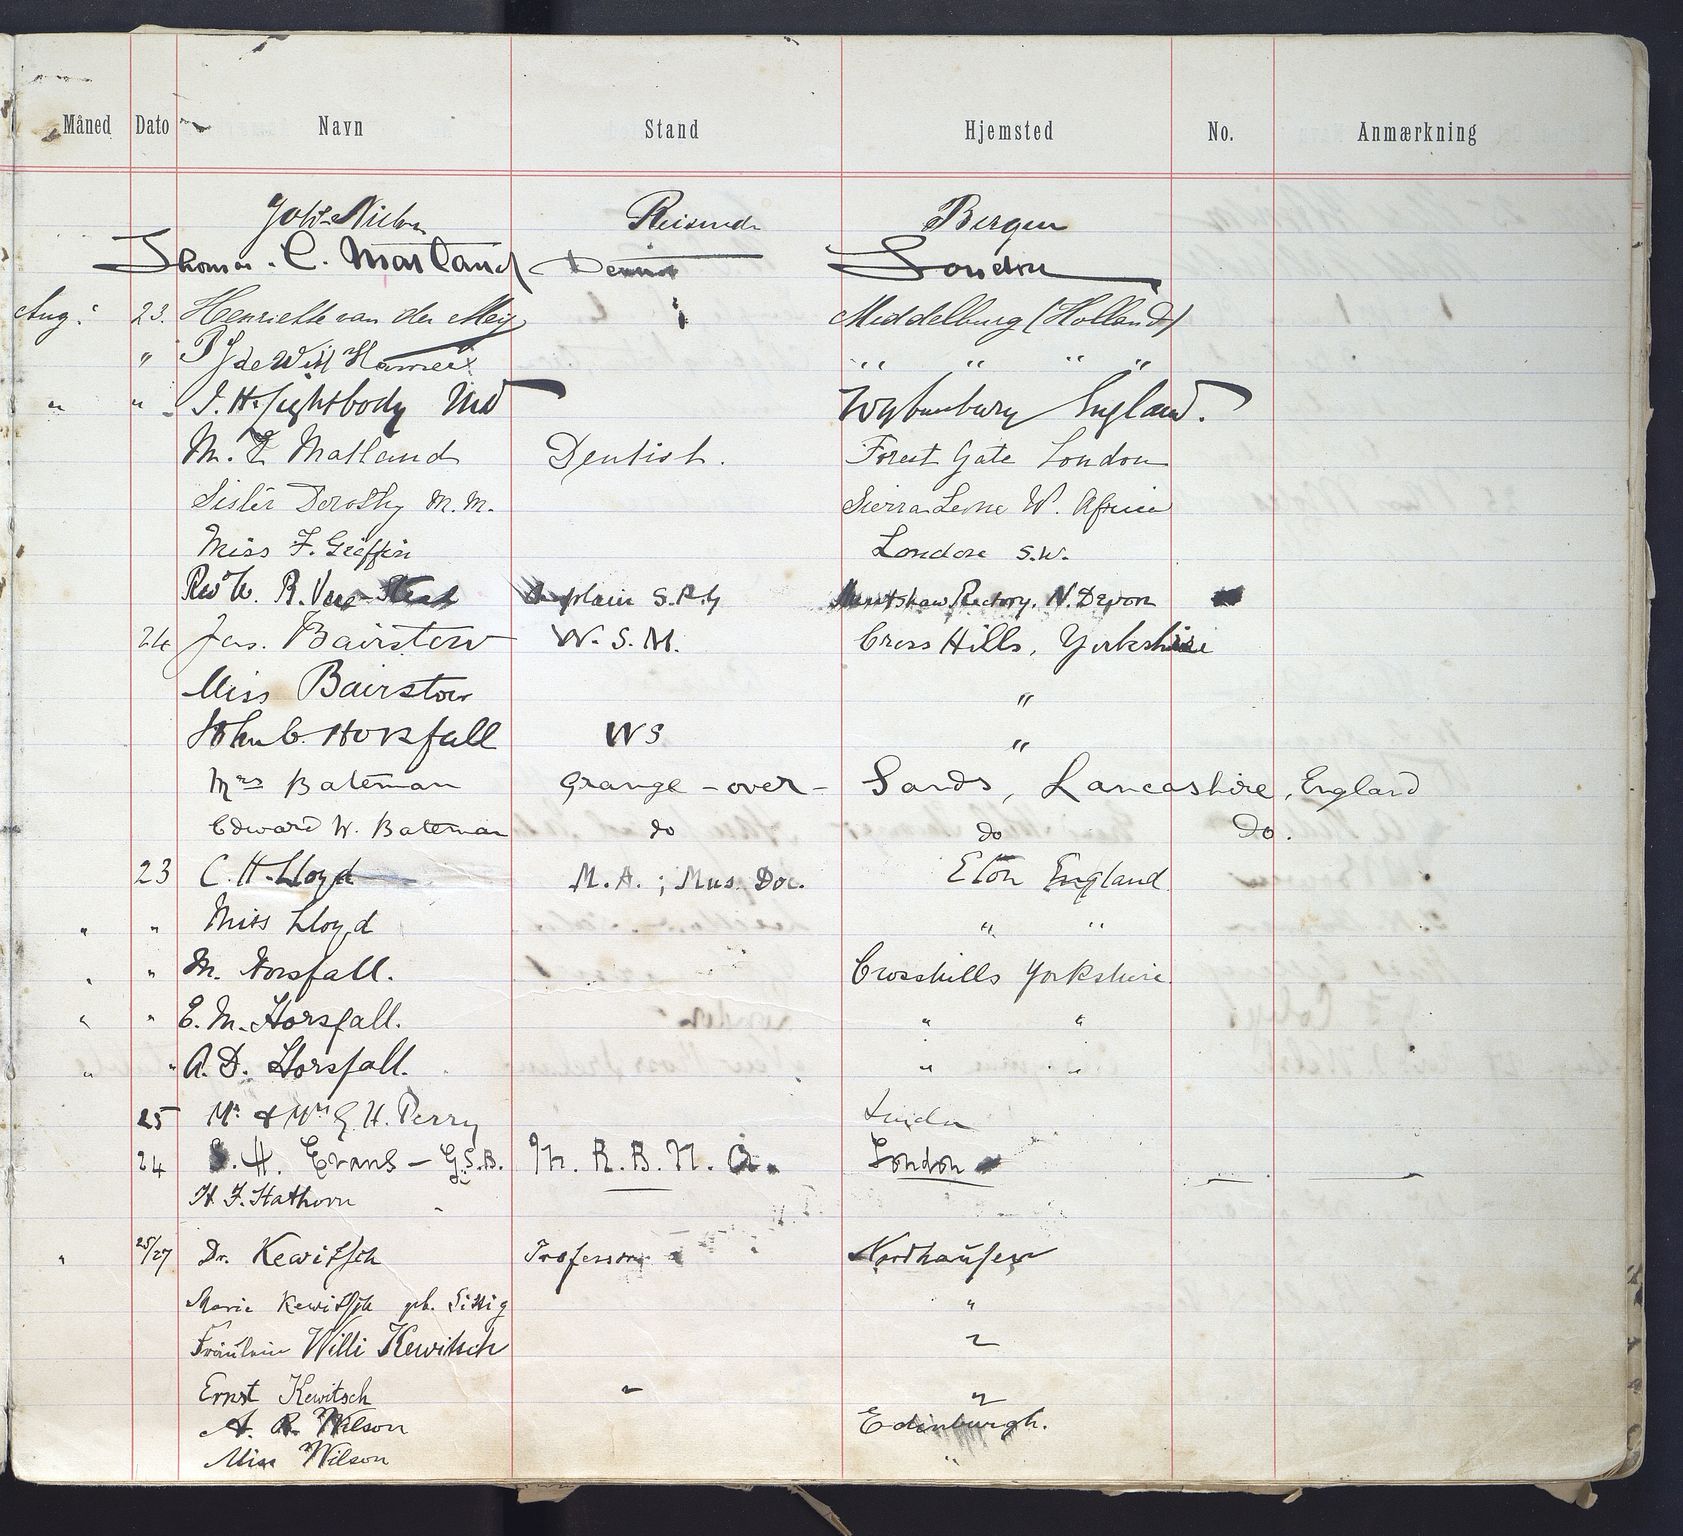 Måned Dato Navn Stand Hjemsted No. Anmærkning
Bergen
Thomas. C. Maitland Dentist London
Aug. 23. Henriette van der Meij Middelburg (Holland)
" P J de Witt Hamer " " " "
" " J. H. Lightbody MD Wybunbury England.
M. E Matland Dentist. Forest Gate London
Sister Dorothy M. M. Sierra Leone W. Africa
Miss F. Griffin London S.W.
Rev W. R. Vere- Rectory. N. Devon
24 Jas. Bairstow W. S. M. Cross Hills, Yorkshire
Miss Bairstow "
John C. Horsfall WS "
Mrs Bateman Grange - over - Sands, Lancashire, England
Edward W. Bateman do do Do.
23 C. H. Lloyd M.A. ; Mus. Doc. Eton England
" " Miss Lloyd " "
" " M. Horsfall. Crosshills Yorkshire.
" " E. M. Horsfall. " "
" " A. D. Horsfall. " "
25 Mr & Mrs H. Perry London
24 S. H. Evans - G.S.B. M. R. B. N. A. London
H. F. Hathorn
" 25/27 Dr. Kewitsch Professor Nordhausen
Marie Kewitsch geb. Sittig "
Fräulein Willi Kewitsch "
Ernst Kewitsch " "
A. R. Wilson Edinburgh.
Miss Wilson "